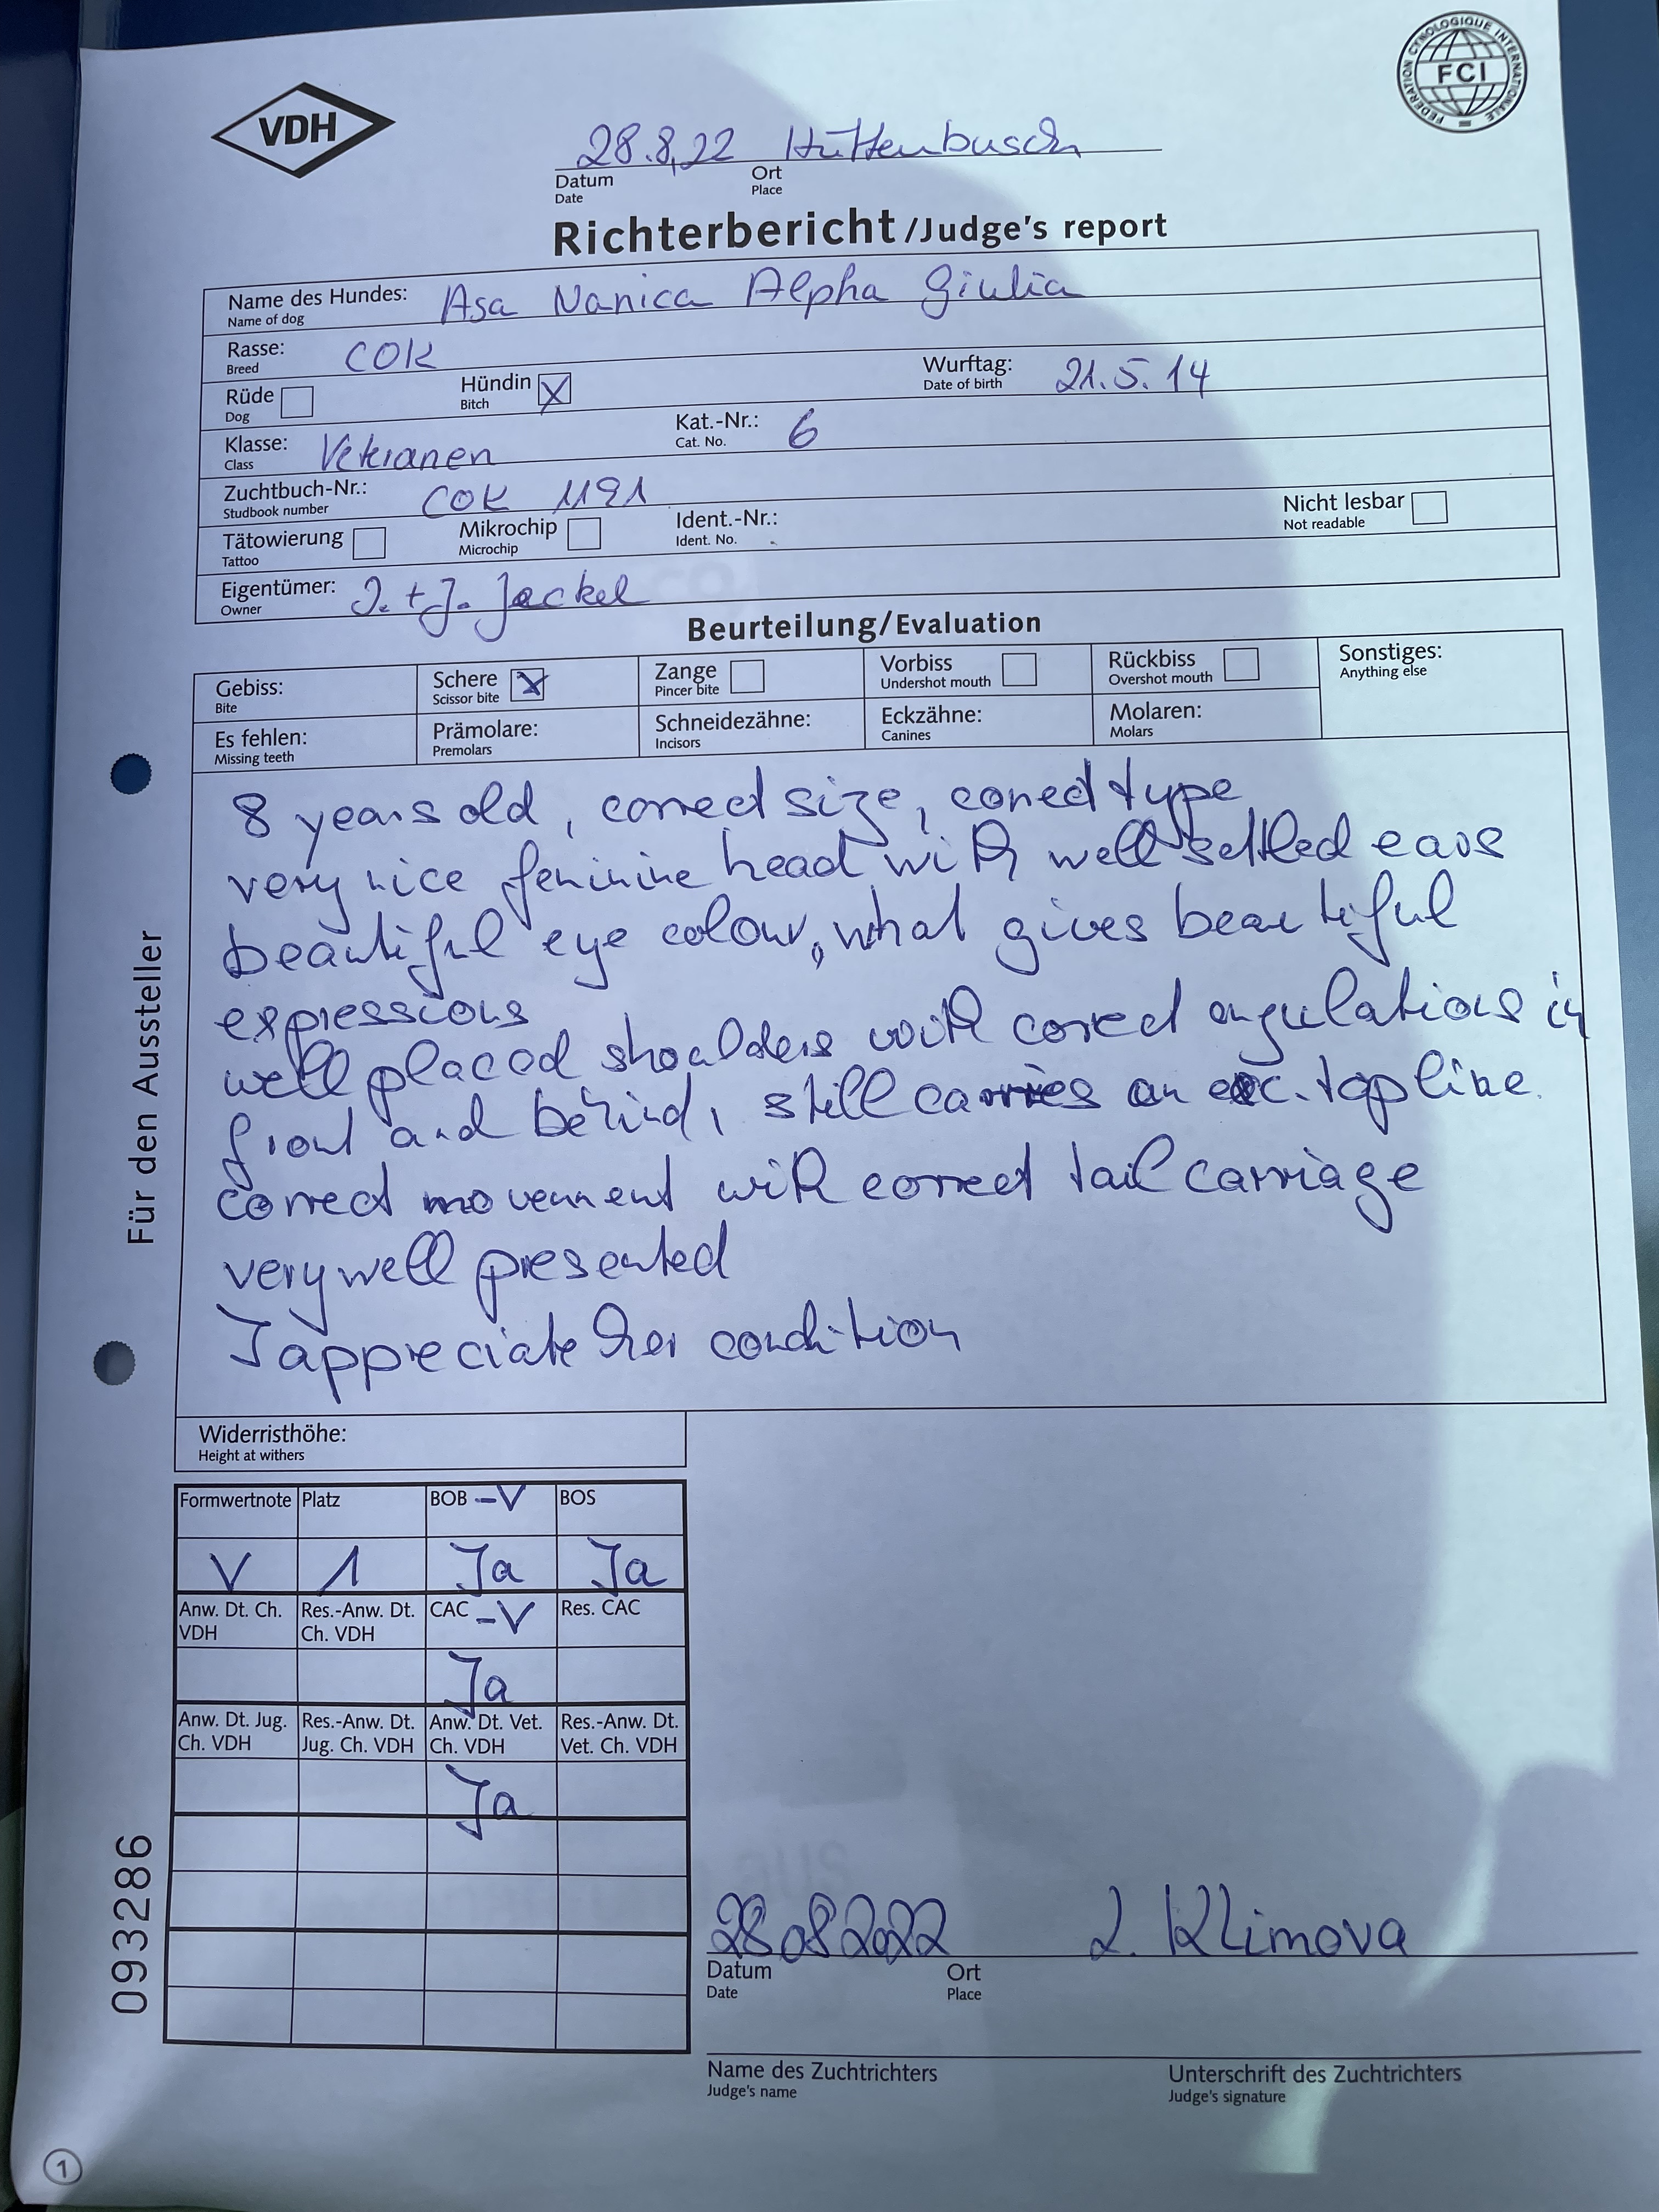 VDH
FEDERATION CYNOLOGIQUE INTERNATIONALE
FCI
28.8.22 Hüttenbusch
Datum Ort
Date Place
Richterbericht/Judge's report
Name des Hundes: Asa Nanica Alpha Giulia
Name of dog
Rasse: COK
Breed
Rüde Hündin X Wurftag: 21.5.14
Dog Bitch Date of birth
Klasse: Veteranen Kat.-Nr.: 6
Class Cat. No.
Zuchtbuch-Nr.: COK 1191
Studbook number
Tätowierung Mikrochip Ident.-Nr.: Nicht lesbar
Tattoo Microchip Ident. No. Not readable
Eigentümer: J. + J. Jeckel
Owner
Beurteilung/Evaluation
Gebiss: Schere X Zange Vorbiss Rückbiss Sonstiges:
Bite Scissor bite Pincer bite Undershot mouth Overshot mouth Anything else
Es fehlen: Prämolare: Schneidezähne: Eckzähne: Molaren:
Missing teeth Premolars Incisors Canines Molars
8 years old, correct size, correct type
very nice feminine head with well settled ears
beautiful eye colour, what gives beautiful
expressions
well placed shoulders with correct angulations in
front and behind, still carries an exc. topline.
correct movement with correct tail carriage
very well presented
I appreciate her condition
Für den Aussteller
Widerristhöhe:
Height at withers
Formwertnote Platz BOB -V BOS
V 1 Ja Ja
Anw. Dt. Ch. VDH Res.-Anw. Dt. Ch. VDH CAC -V Res. CAC
Ja
Anw. Dt. Jug. Ch. VDH Res.-Anw. Dt. Jug. Ch. VDH Anw. Dt. Vet. Ch. VDH Res.-Anw. Dt. Vet. Ch. VDH
Ja
093286
28 08 2022 L. Klimova
Datum Ort
Date Place
Name des Zuchtrichters Unterschrift des Zuchtrichters
Judge's name Judge's signature
1